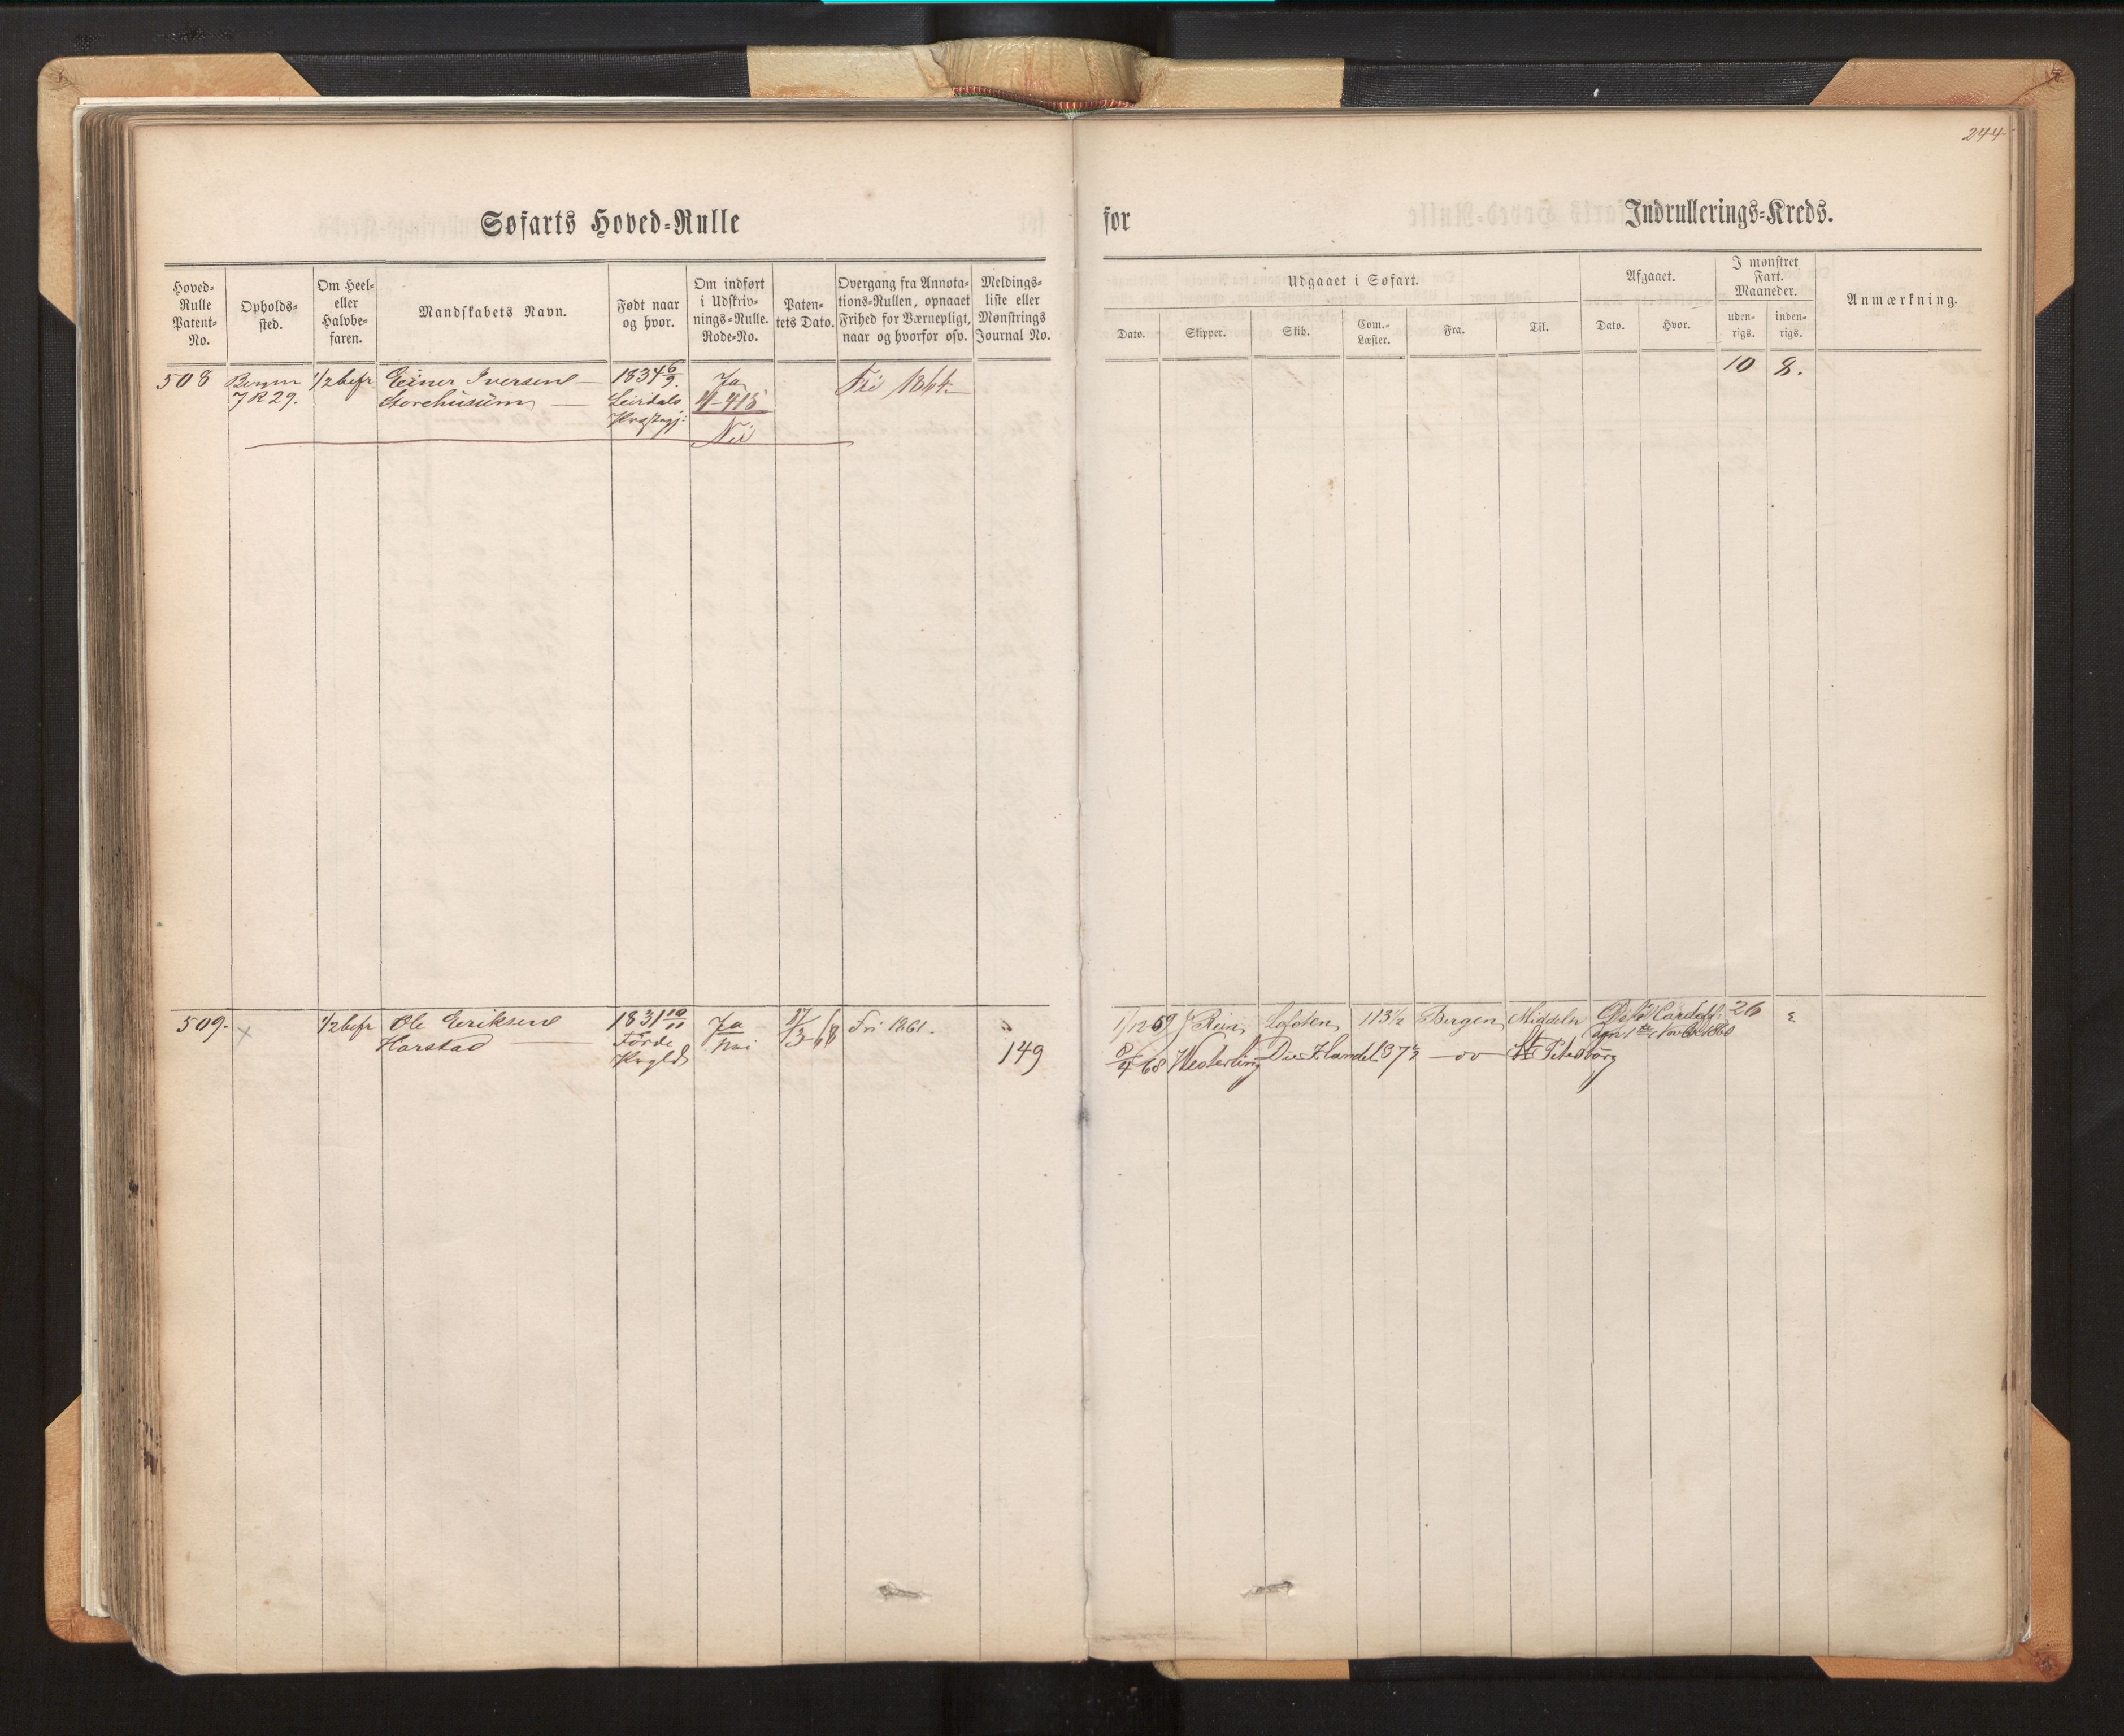 244
Søfarts Hoved-Rulle
for Indrullerings-Kreds.
Hoved-Rulle Patent-No.
Opholds-sted.
Om Heel- eller Halvbe-faren.
Mandskabets Navn.
Født naar og hvor.
Om indført i Udskriv-nings-Rulle. Rode-No.
Paten-tets Dato.
Overgang fra Annota-tions-Rullen, opnaaet Frihed for Værnepligt, naar og hvorfor osv.
Meldings-liste eller Mønstrings Journal No.
Udgaaet i Søfart.
Afgaaet.
I mønstret Fart. Maaneder.
Anmærkning.
Dato. Skipper. Skib. Com.-Læster. Fra. Til. Dato. Hvor. uden-rigs. inden-rigs.
508 Bergen 1/2 befr Einer Iversen 1834 6/9 Ja Fri 1864 10 8.
7 R 29. Storehusum Leirdals 4-415
Præstegj: Nei
509. 1/2 befr Ole Eriksen 1831 10/11 Ja 17/3 68 Fri 1861. 1/12 59 Lofoten 113 1/2 Bergen Middelh 26
Harstad Førde Nei
149 8/4 68 Westerling 137 St Petersborg